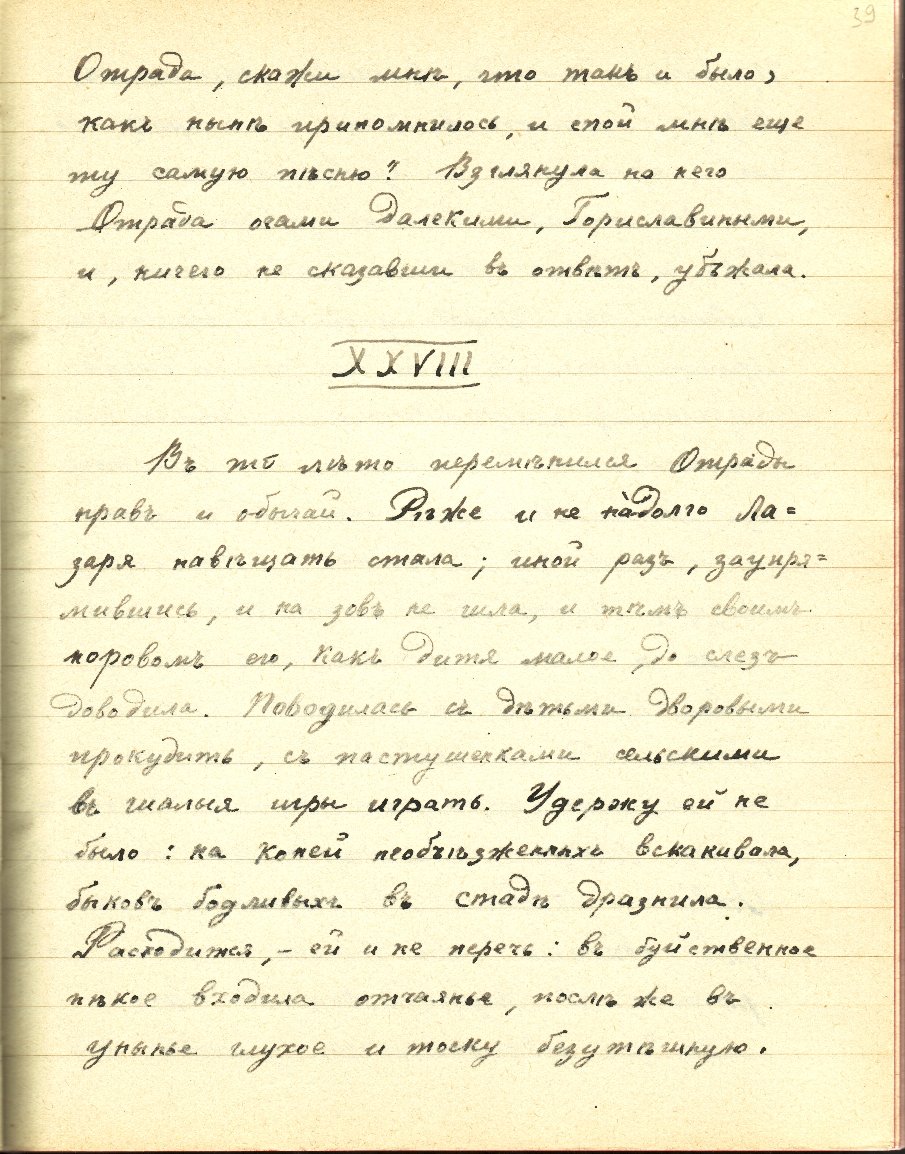 39
Отрада, скажи мнѣ, что такъ и было,
какъ нынѣ припомнилось, и спой мнѣ еще
ту самую пѣсню!" Взглянула на него
Отрада очами далекими, Гориславиными,
и, ничего не сказавши въ отвѣтъ, убѣжала.
XXVIII
Въ то лѣто перемѣнился Отрады
нравъ и обычай. Рѣже и не на́долго Ла=
заря навѣщать стала; иной разъ, заупря=
мившись, и на зовъ не шла, и тѣмъ своимъ
норовомъ его, какъ дитя малое, до слезъ
доводила. Поводилась съ дѣтьми дворовыми
прокудить, съ пастушенками сельскими
въ шалыя игры играть. Удержу ей не
было: на коней необъѣзженныхъ вскакивала,
быковъ бодливыхъ въ стадѣ дразнила.
Расходится, – ей и не перечь: въ буйственное
нѣкое входила отчаянье, послѣ же въ
унынье глухое и тоску безутѣшную.